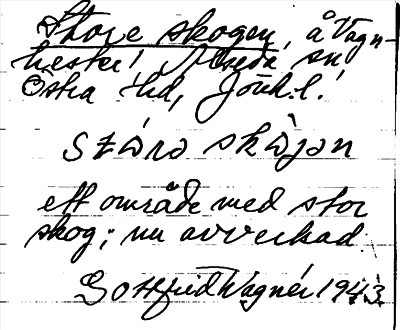 Store skogen, å Vagn-
hester, Alseda sn
Östra hd, Jönk. l.
stóra skòjan
ett område med stor
skog; nu avverkad.
Gottfrid Wagnér 1943